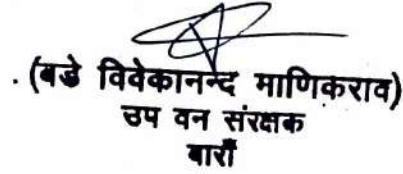 . (बडे विवेकानन्द माणिकराव)
उप वन संरक्षक
बारॉं